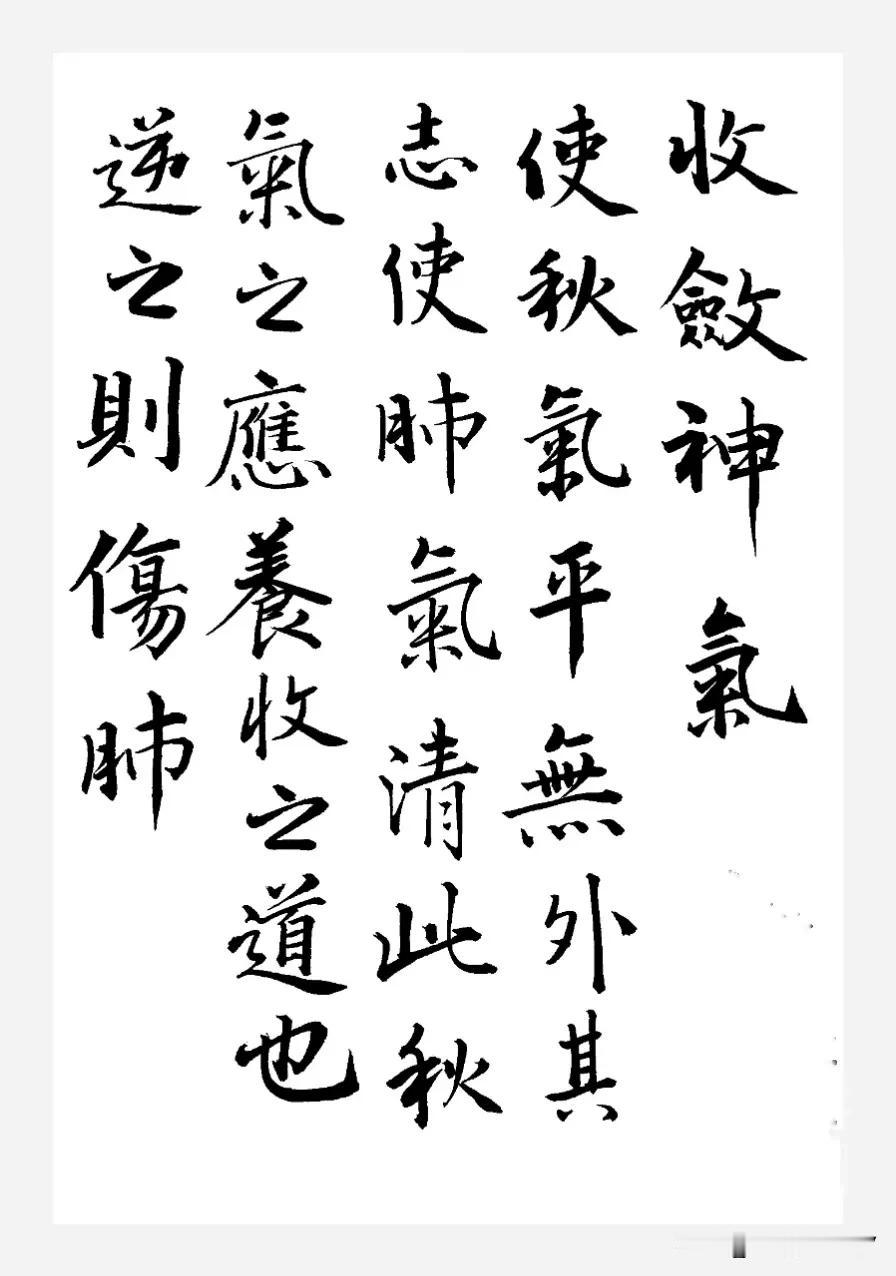 收斂神氣
使秋氣平無外其
志使肺氣清此秋
氣之應養收之道也
逆之則傷肺